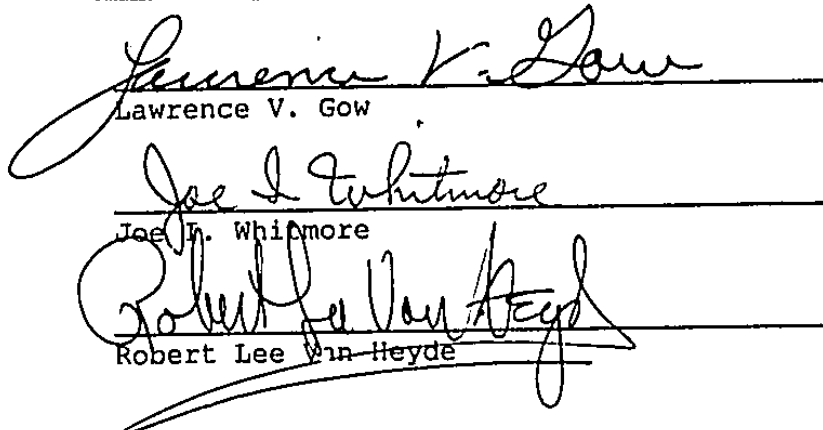 Lawrence V. Gow
Lawrence V. Gow
Joe I Whitmore
Joe I. Whitmore
Robert Lee Van Heyde
Robert Lee Van Heyde